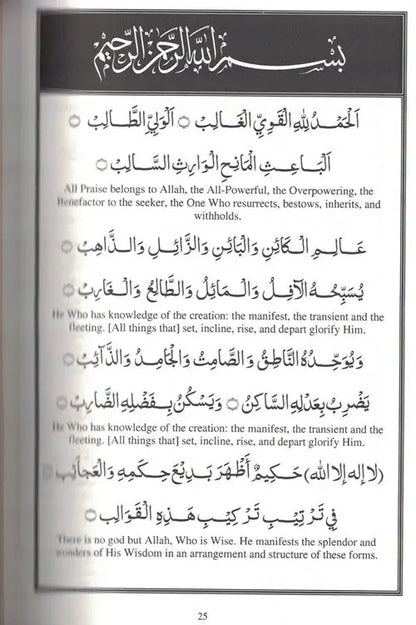 بِسْمِ اللهِ الرَّحْمٰنِ الرَّحِيْمِ
اَلْحَمْدُ لِلّٰهِ الْقَوِيِّ الْغَالِبْ ۞ اَلْوَلِيِّ الطَّالِبْ ۞
اَلْبَاعِثِ الْمَانِحِ الْوَارِثِ السَّالِبْ ۞
All Praise belongs to Allah, the All-Powerful, the Overpowering, the
Benefactor to the seeker, the One Who resurrects, bestows, inherits, and
withholds.
عَالِمِ الْكَائِنِ وَالْبَائِنِ وَالزَّائِلِ وَالذَّاهِبْ ۞
يُسَبِّحُهُ الْآفِلُ وَالْمَائِلُ وَالطَّالِعُ وَالْغَارِبُ ۞
He Who has knowledge of the creation: the manifest, the transient and the
fleeting. [All things that] set, incline, rise and depart glorify Him.
وَيُوَحِّدُهُ النَّاطِقُ وَالصَّامِتُ وَالْجَامِدُ وَالذَّآئِبُ ۞
يَضْرِبُ بِعَدْلِهِ السَّاكِنُ ۞ وَيَسْكُنُ بِفَضْلِهِ الضَّارِبُ ۞
He Who has knowledge of the creation: the manifest, the transient and the
fleeting. [All things that] set, incline, rise and depart glorify Him.
(لا إله إلا الله) حَكِيْمٌ أَظْهَرَ بَدِيْعَ حِكَمِهِ وَالْعَجَآئِبْ ۞
فِيْ تَرْتِيْبِ تَرْكِيْبِ هَذِهِ الْقَوَالِبْ ۞
There is no god but Allah, Who is Wise. He manifests the splendor and
wonders of His Wisdom in an arrangement and structure of these forms.
25